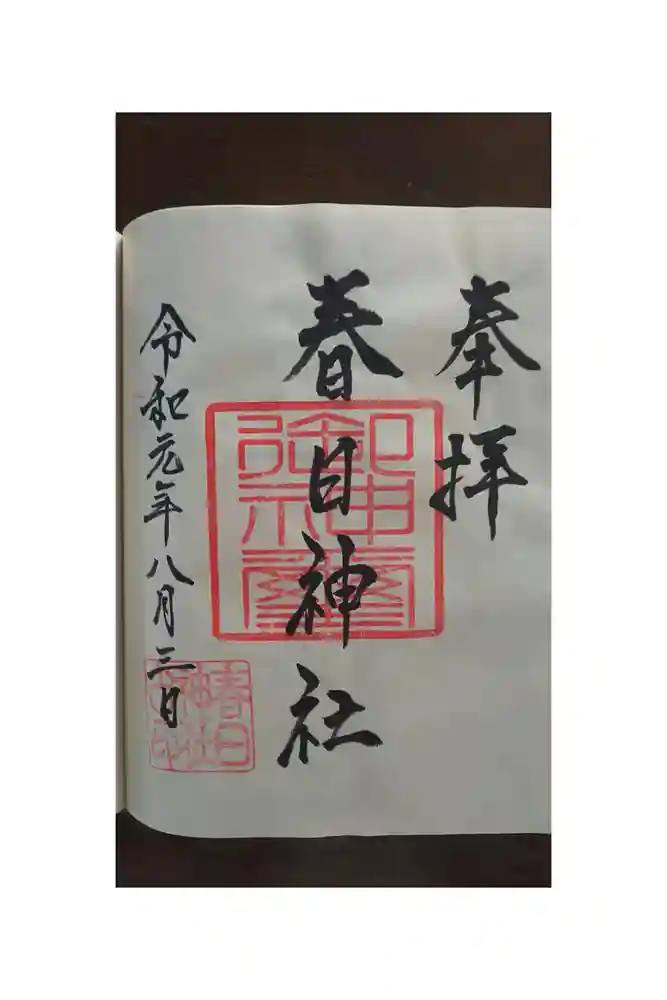 奉拝
春日神社
令和元年八月三日
御神璽
春日神社